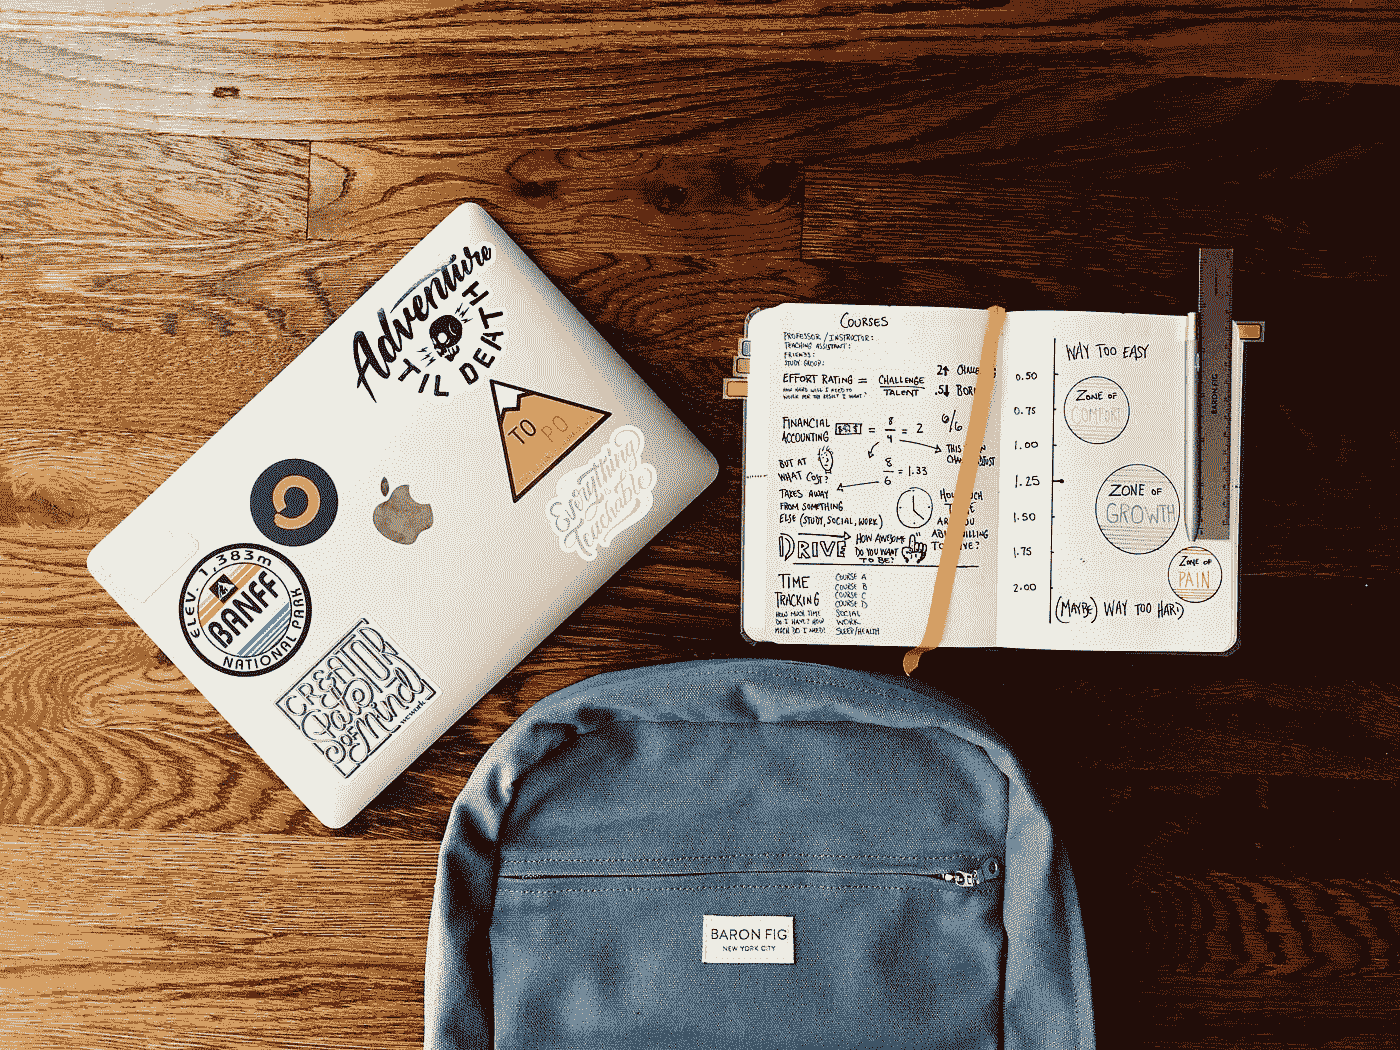 Adventure
'TIL DEATH
TO PO
Everything
is
Teachable
ELEV. 1,383m
BANFF
NATIONAL PARK
CREATOR
State
OF Mind
NETWORK
COURSES
PROFESSOR / INSTRUCTOR:
TEACHING ASSISTANT:
FRIENDS:
STUDY GROUP:
EFFORT RATING = CHALLENGE
TALENT
HOW HARD WILL I NEED TO
WORK FOR THE RESULT I WANT?
2↑ CHALLENG
.5↓ BOR
FINANCIAL
ACCOUNTING $$$ = 8/4 = 2
6/6
THIS
CHA
BUT AT
WHAT COST?
8/6 = 1.33
TAKES AWAY
FROM SOMETHING
ELSE (STUDY, SOCIAL, WORK)
HOW MUCH
TIME
ARE YOU
WILLING
TO GIVE?
DRIVE
HOW AWESOME
DO YOU WANT
TO BE?
TIME
TRACKING
HOW MUCH TIME
DO I HAVE? HOW
MUCH DO I NEED?
COURSE A
COURSE B
COURSE C
COURSE D
SOCIAL
WORK
SLEEP/HEALTH
WAY TOO EASY
0.50
0.75
1.00
1.25
1.50
1.75
2.00
ZONE OF
COMFORT
ZONE OF
GROWTH
ZONE OF
PAIN
(MAYBE) WAY TOO HARD
BARON FIG
BARON FIG
NEW YORK CITY